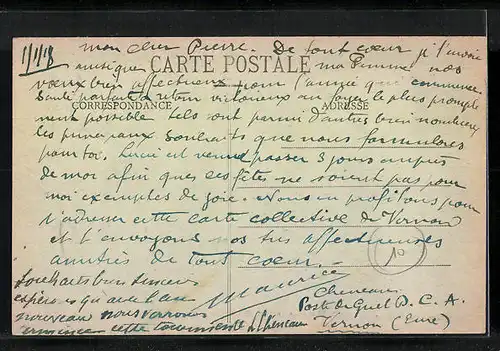 1/1/18
mon cher Pierre. De tout coeur je t'envoie
ainsi que ma Femme nos
CARTE POSTALE
voeux bien affectueux pour l'année qui commence.
Santé parfaite, retour victorieux au foyer le plus prompte
CORRESPONDANCE ADRESSE
ment possible tels sont parmi d'autres bien nombreux
les principaux souhaits que nous formulons
pour toi. Lucie est venue passer 3 jours auprès
de moi afin que ces fêtes ne soient pas pour
moi exemptes de joie. Nous en profitons pour
t'adresser cette carte collective de Vernon
et t'envoyons nos très affectueuses
amitiés de tout coeur.
Maurice
Souhaits bien sincères
espérons qu'avec l'an
nouveau nous verrons
terminer cette tourmente L. Cheneau
Cheneau
Poste de Guet D. C. A.
Vernon (Eure)
10